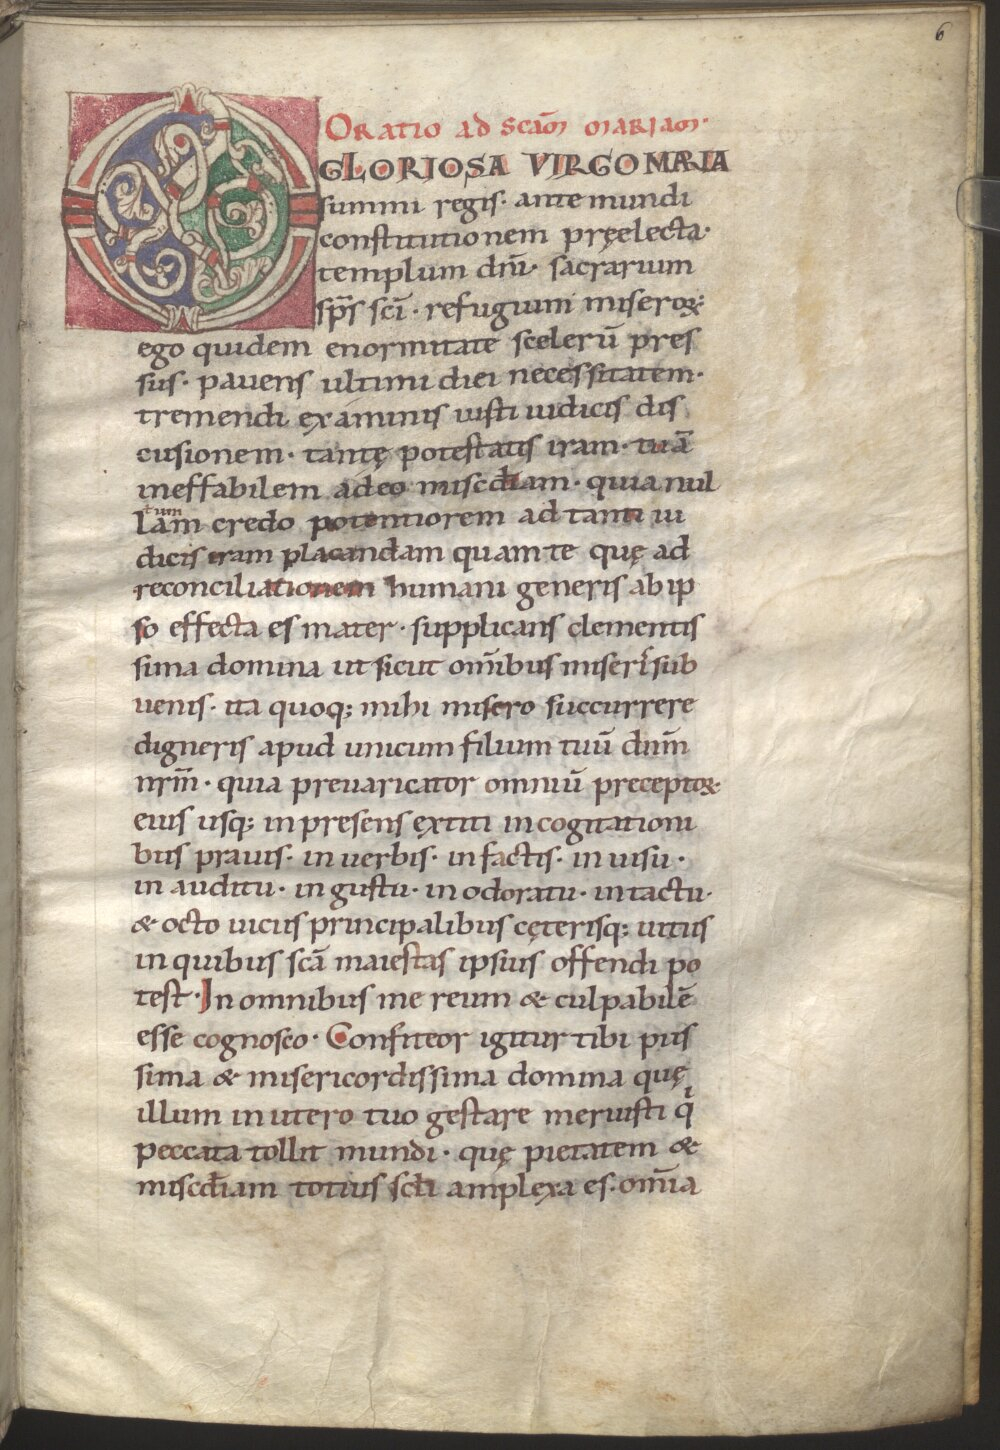 6
Oratio ad scam̄ mariam·
O GLORIOSA VIRGO MARIA
summi regis· ante mundi
constitutionem pręelecta·
templum dnī· sacrarium
sp̄s scī· refugium miseroꝝ:
ego quidem enormitate scelerū pres
sus· pauens ultimi diei necessitatem·
tremendi examinis iusti iudicis dis
cusionem· tantę potestatis iram· tuā
ineffabilem adeo miscd̄iam· quia nul
lam credo potentiorem ad tanti iu
tum
dicis iram placandam quam te quę ad
reconciliationem humani generis ab ip
so effecta es mater· supplicans clementis
sima domina ut sicut om̄ibus miseris sub
uenis· ita quoq; mihi misero succurrere
digneris apud unicum filium tuū dnm̄
nrm̄· quia preuaricator omniū preceptoꝝ
eius usq; in presens ęxtiti in cogitationi
bus prauis· in uerbis· in factis· in uisu·
in auditu· in gustu· in odoratu· in tactu·
& octo uicus principalibus cęterisq; uitiis
in quibus scā maiestas ipsius offendi po
test· In omnibus me reum & culpabilē
esse cognosco· Confiteor igitur tibi piis
sima & misericordissima domina quę
illum in utero tuo gestare meruisti qͥ
peccata tollit mundi· quę pietatem &
miscd̄iam totius scl̄i amplexa es· om̄ia